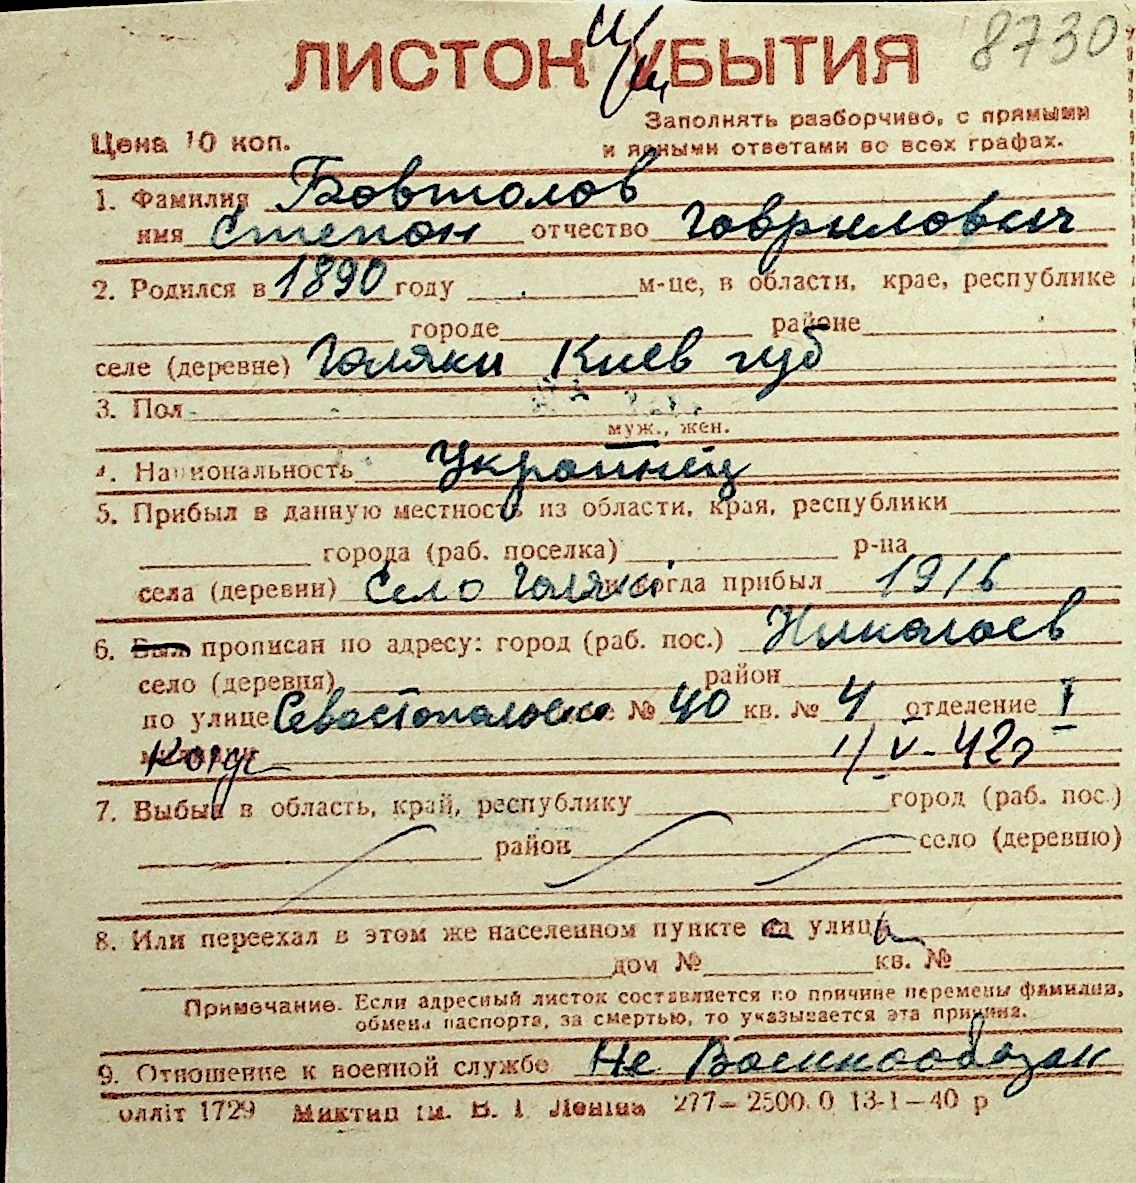 8730
ЛИСТОК УБЫТИЯ
Цена 10 коп.
Заполнять разборчиво, с прямыми
и ясными ответами во всех графах.
1. Фамилия Бовтолов
имя Степан отчество Гаврилович
2. Родился в 1890 году м-це, в области, крае, республике
городе районе
селе (деревне) Галяки Киев губ
3. Пол
муж., жен.
4. Национальность Украйнец
5. Прибыл в данную местность из области, края, республики
города (раб. поселка) р-на
села (деревни) село Галяки когда прибыл 1916
6. Был прописан по адресу: город (раб. пос.) Николаев
село (деревня) район
по улице Севастопольско № 40 кв. № 4 отделение I
Когда 1/V-42г
7. Выбыл в область, край, республику город (раб. пос.)
район село (деревню)
8. Или переехал в этом же населенном пункте на улицу
дом № кв. №
Примечание. Если адресный листок составляется по причине перемены фамилии,
обмена паспорта, за смертью, то указывается эта причина.
9. Отношение к военной службе Не Военнообазан
олліт 1729 Миктип ім. В. І. Леніна 277—2500.0 13-1—40 р